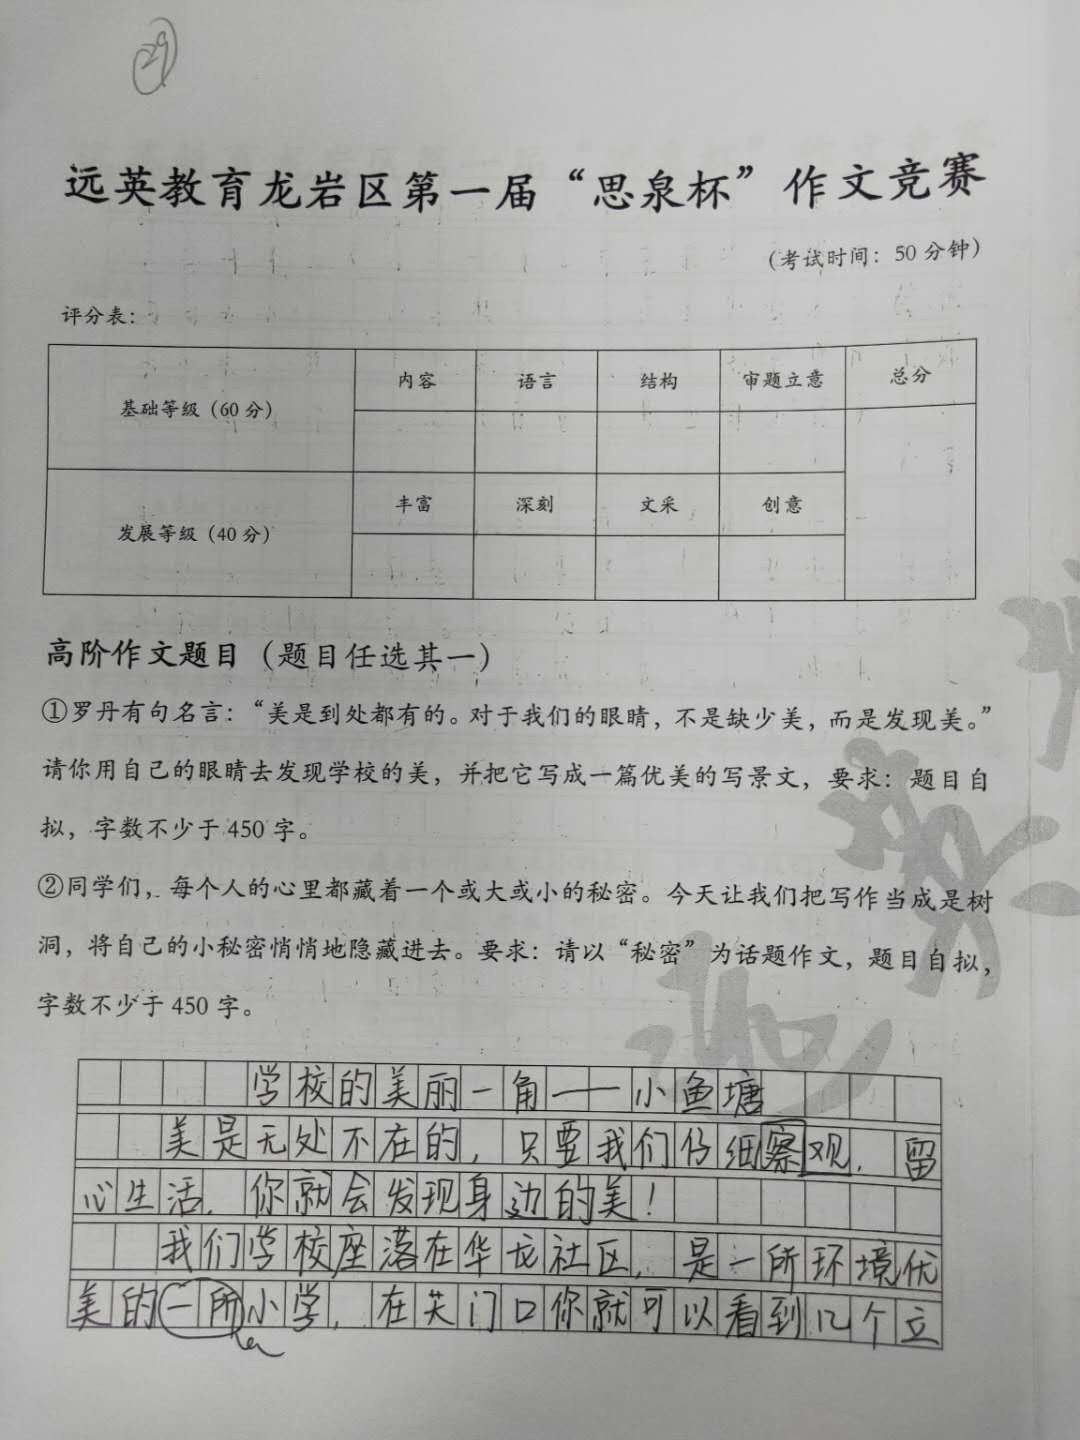 29
远英教育龙岩区第一届“思泉杯”作文竞赛
(考试时间：50分钟)
评分表：
基础等级（60分） 内容 语言 结构 审题立意 总分
发展等级（40分） 丰富 深刻 文采 创意
高阶作文题目（题目任选其一）
①罗丹有句名言：“美是到处都有的。对于我们的眼睛，不是缺少美，而是发现美。”
请你用自己的眼睛去发现学校的美，并把它写成一篇优美的写景文，要求：题目自
拟，字数不少于450字。
②同学们，每个人的心里都藏着一个或大或小的秘密。今天让我们把写作当成是树
洞，将自己的小秘密悄悄地隐藏进去。要求：请以“秘密”为话题作文，题目自拟，
字数不少于450字。
学校的美丽一角——小鱼塘
美是无处不在的，只要我们仔细察观，留
心生活，你就会发现身边的美！
我们学校座落在华龙社区，是一所环境优
美的一所小学，在大门口你就可以看到几个立